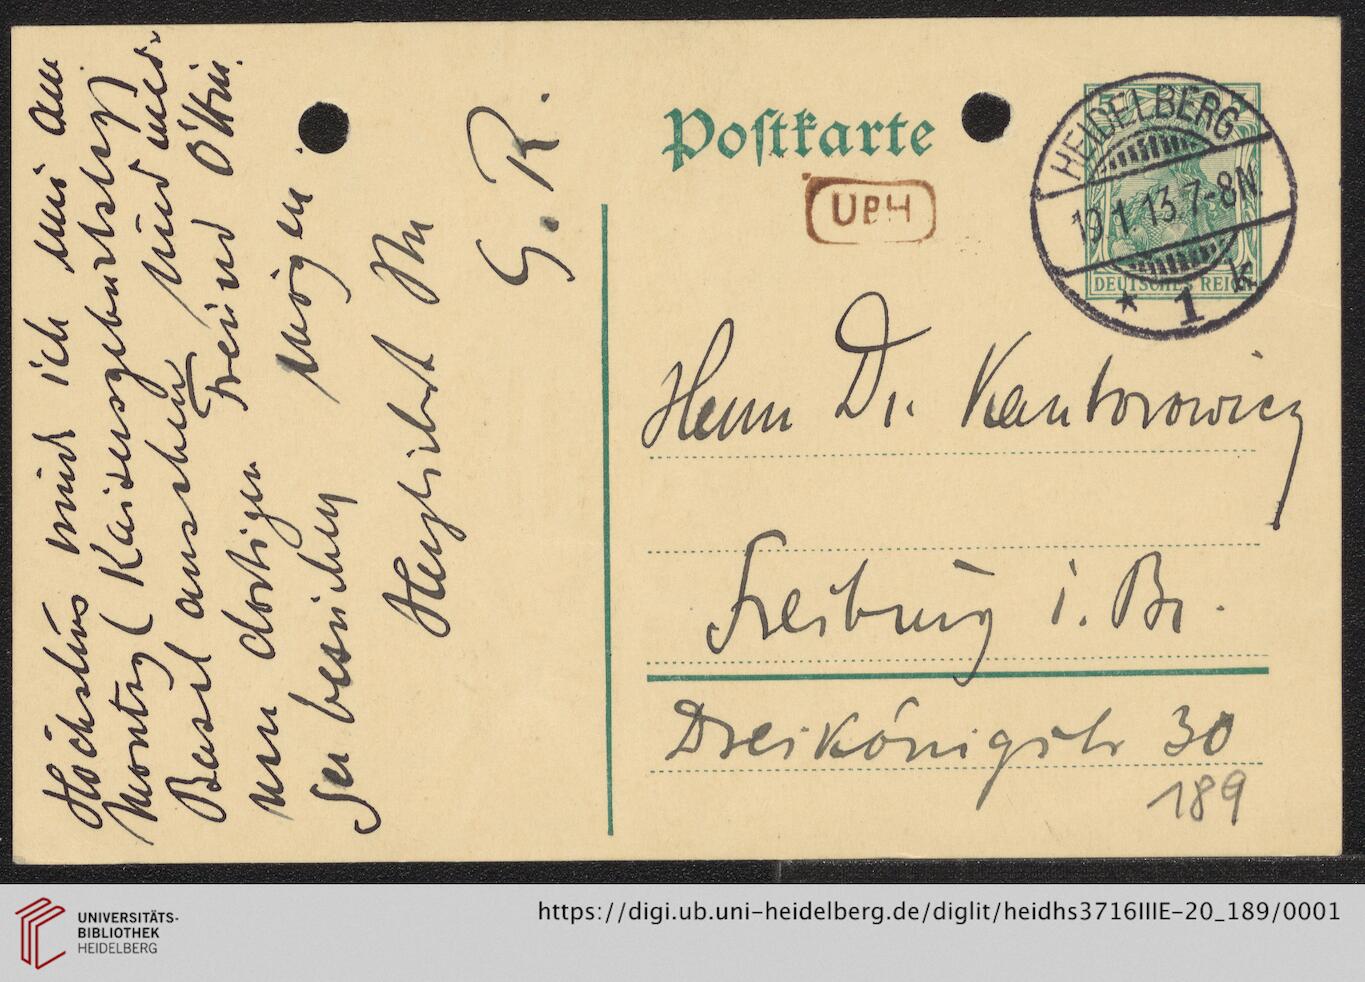 Höchstens wird ich mir am
Montag (Kaisersgeburtstag)
Basel ansehen und
dortigen Freund
besuchen. Mögen
Herzlichst Ihr
G. R.
Postkarte
UBH
HEIDELBERG
19.1.13.7-8N.
* 1 K
5
DEUTSCHES REICH
Herrn Dr. Kantorowicz
Freiburg i. Br.
Dreikönigstr 30
189
UNIVERSITÄTS-
BIBLIOTHEK
HEIDELBERG
https://digi.ub.uni-heidelberg.de/diglit/heidhs3716IIIE-20_189/0001